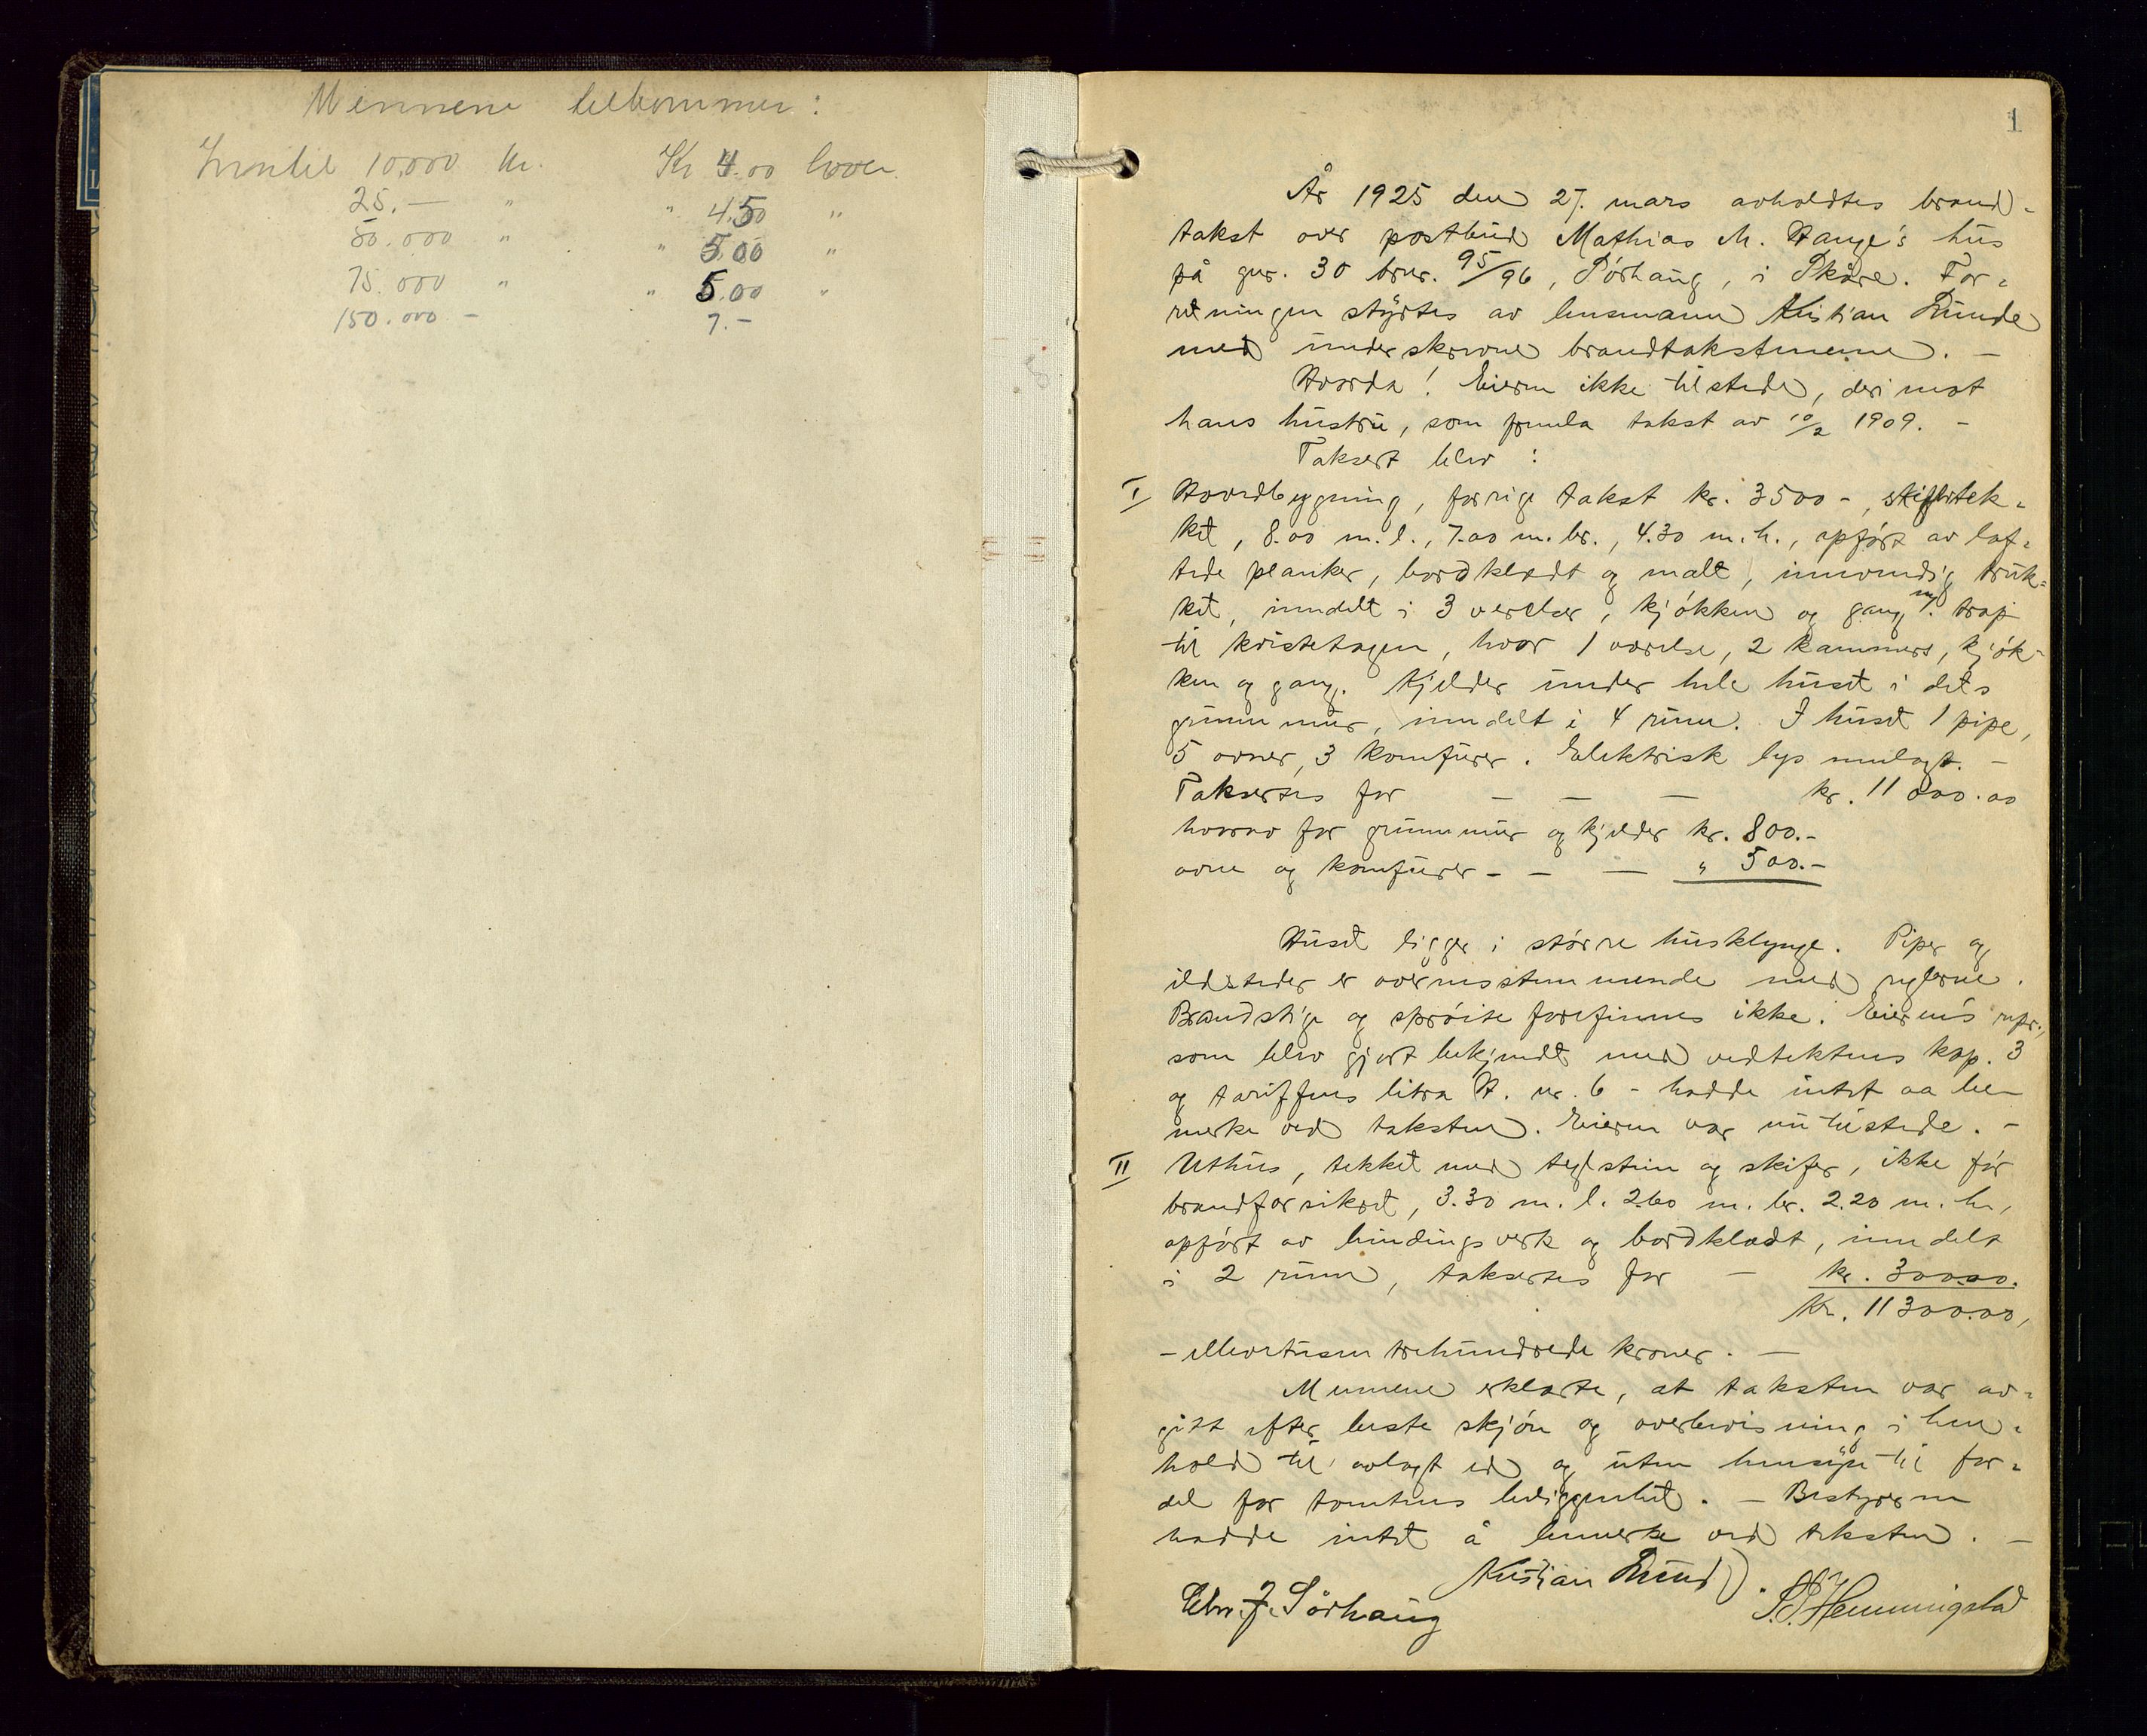 Mennene tilkommer:
Inntil 10.000 kr. Kr 4.00 hver
25.— " " 4.50 "
50.000 " " 5.00 "
75.000 " " 5.00 "
150.000 - 7.-
1
År 1925 den 27. mars avholdtes brand-
takst over postbud Mathias M. Hauge's hus
på gnr. 30 brnr. 95/96, Sørhaug, i Skåre. For-
retningen styrtes av lensmann Kristian Lunde
med underskrevne brandtakstmenn. —
Hvorda! Eieren ikke tilstede, derimot
hans hustru, som fremla takst av 10/2 1909. -
Taksert blev:
I Hovedbygning, forrige takst kr. 3500-, skiftertek-
ket, 8.00 m.l., 7.00 m.br., 4.30 m.h., opført av laf-
tede planker, bordklædt og malt, innvendig truk-
ket, inndelt i 3 værelser, kjøkken og gang m. trap
til kvistetagen, hvor 1 værelse, 2 kammers, kjøk-
ken og gang. Kjelder under hele huset i dets
grunnmur, inndelt i 4 rum. I huset 1 pipe,
5 ovner, 3 komfurer. Elektrisk lys innlagt. -
Taksertes for — — — kr. 11 000.00
hvorav for grunnmur og kjelder kr. 800.-
ovne og komfurer - - — " 500.-
Huset ligger i større husklynge. Piper og
ildsteder er overensstemmende med reglerne.
Brandstige og sprøite forefinnes ikke. Eierens repr.,
som blev gjort bekjendt med vedtektens kap. 3
og tariffens litra H. nr. 6 - hadde intet aa be-
merke ved taksten. Eieren var nu tilstede. -
II Uthus, tekket med teglstein og skifer, ikke før
brandforsikret, 3.30 m. l. 2.60 m. br. 2.20 m. h.,
opført av bindingsverk og bordklædt, inndelt
i 2 rum, taksertes for — kr. 300.00.
Kr. 11300.00,
- ellevetusen trehundrede kroner. —
Mennene erklærte, at taksten var av-
gitt efter beste skjøn og overbevisning i hen-
hold til avlagt ed og uten hensyn til for-
del for tomtens beliggenhet. - Bestyreren
hadde intet å bemerke ved taksten. -
Kristian Lunde.
Elm. J. Sørhaug S. S. Hemmingstad